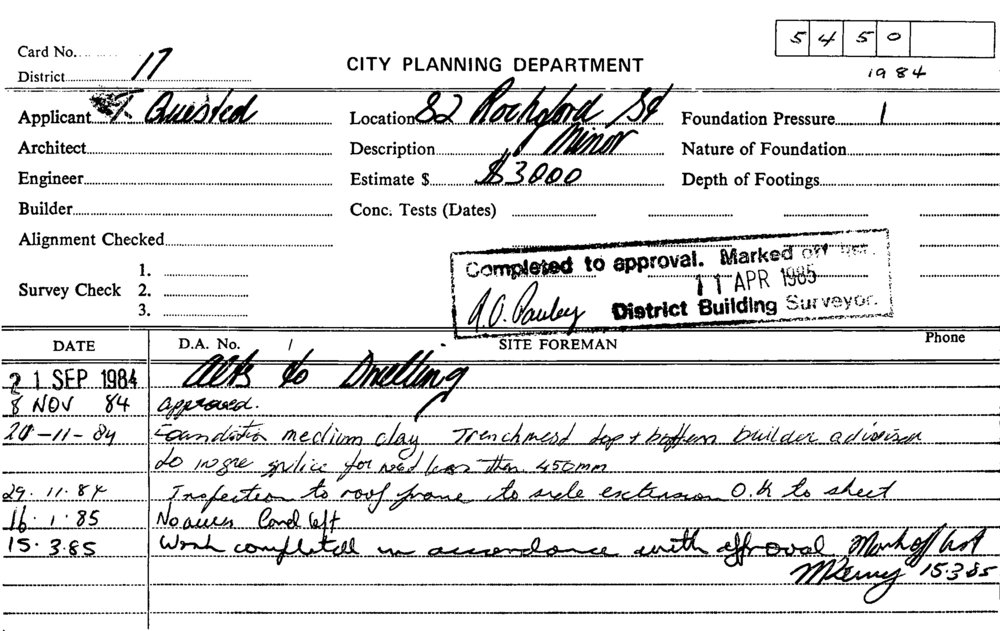 5 4 5 0
Card No.
District 17
CITY PLANNING DEPARTMENT
1984
Applicant T. Quested
Location 82 Rochford St
Foundation Pressure 1
Architect
Description Minor
Nature of Foundation
Engineer
Estimate $ $3000
Depth of Footings
Builder
Conc. Tests (Dates)
Alignment Checked
Survey Check 1.
2.
3.
Completed to approval. Marked off
11 APR 1985
District Building Surveyor.
DATE D.A. No. / SITE FOREMAN Phone
21 SEP 1984 Alts to Dwelling
8 NOV 84 approved.
20-11-84 Foundation medium clay Trenchmesh top + bottom builder advised
to splice for not less than 450mm
29.11.84 Inspection to roof frame to side extension O.K to sheet
16.1.85 No access Card left
15.3.85 Work completed in accordance with approval Mark off list
15.3.85